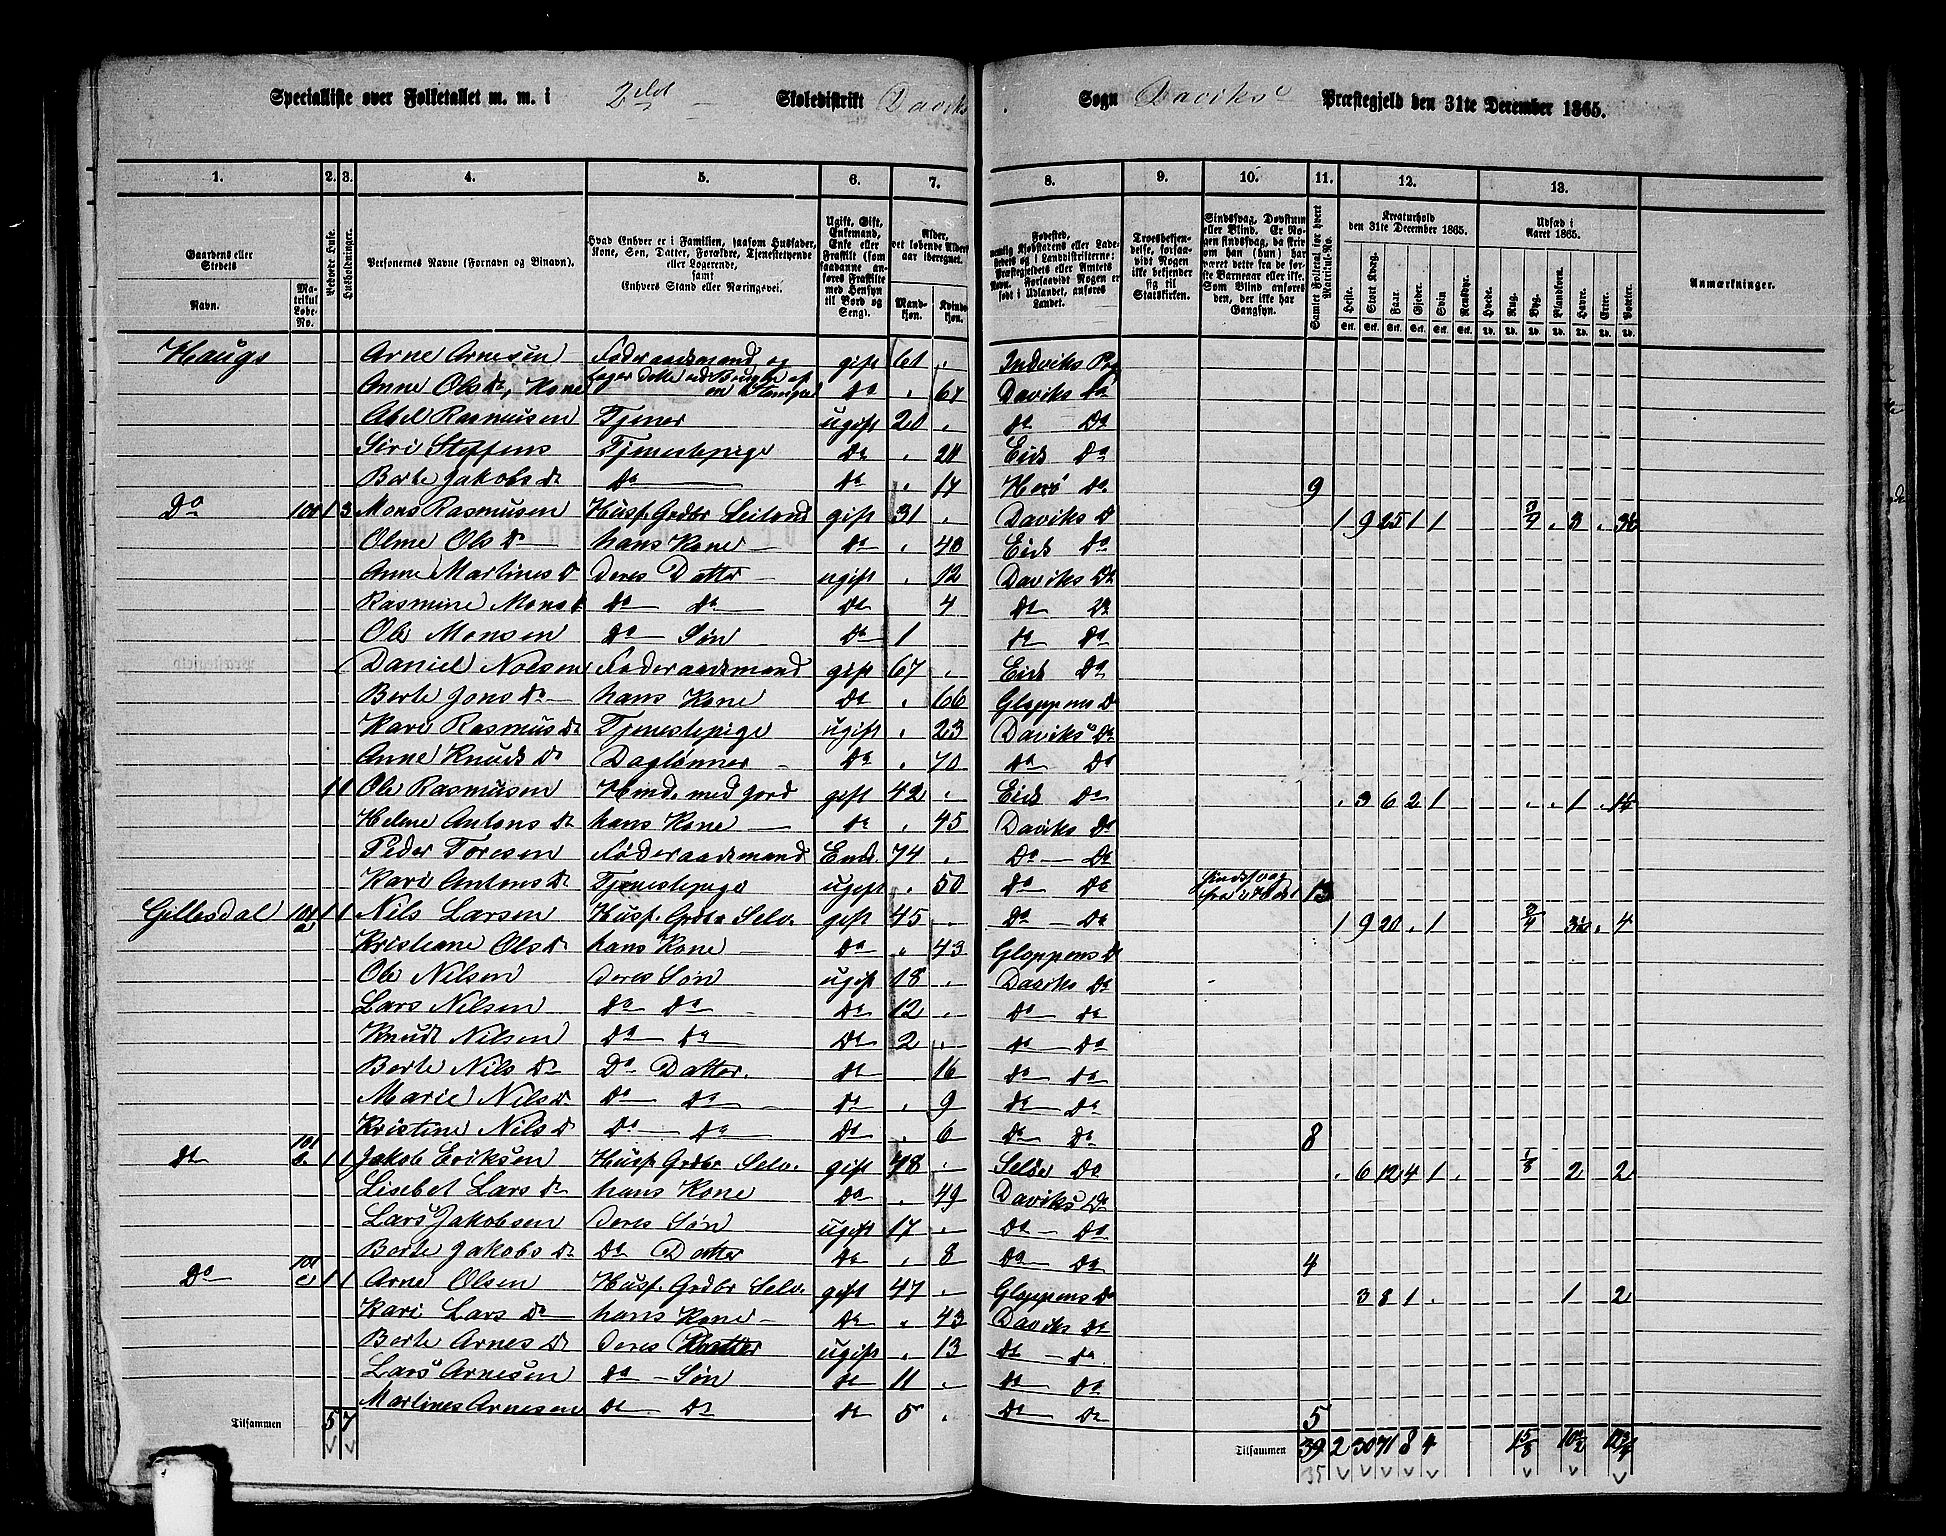 Specialliste over Folketallet m. m. i 2det Skoledistrikt Daviks Sogn Daviks Præstegjeld den 31te December 1865.
1. 2. 3. 4. 5. 6. 7. 8. 9. 10. 11. 12. 13.
Gaardens eller Stedets
Navn.
Matrikul Løbe-No.
Beboede Huse.
Husholdninger.
Personernes Navne (Fornavn og Binavn).
Hvad Enhver er i Familien, saasom Husfader, Kone, Søn, Datter, Forældre, Tjenestetyende eller Logerende,
samt
Enhvers Stand eller Næringsvei.
Ugift, Gift, Enkemand, Enke eller Fraskilt (som saadanne anføres Fraskilte med Hensyn til Bord og Seng).
Alder, det løbende Alders-aar iberegnet.
Mandkjøn. Kvindekjøn.
Trosbekjendelse, forsaavidt Nogen ikke bekjender sig til Statskirken.
Samlet Folketal for hvert Matrikul-No.
Kreaturhold den 31te December 1865.
Heste. Stort Kvæg. Faar. Gjeder. Svin. Rensdyr.
Udsæd i Aaret 1865.
Hvede. Rug. Byg. Blandkorn. Havre. Erter. Poteter.
Anmærkninger.
Haugs Arne Arnesøn Føderaadsmand og gift 61 Indviks Pgj
Anne Olsdr, Kone Do 67 Daviks Do
Abel Rasmusen Tjener ugift 20 do Do
Siri Steffens Tjenestepige Do Eids Do
Berte Jakobs Dr Do Do 17 Herø Do 9
Do 100 1 3 Mons Rasmusen Husf. Grdbr Leilend gift 31 Daviks D 1 9 25 1 1
Olme Ols Dr hans Kone Do 40 Eids Do
Anne Martines D Deres Datter ugift 12 Daviks Do
Rasmine Mons D Do Do Do 4 do Do
Ole Monsen Do Søn Do 1 do Do
Daniel Nolsen Føderaadsmand gift 67 Eids Do
Berte Jons Dr hans Kone Do 66 Gloppens D
Kari Rasmus Dr Tjenestepige ugift 23 Daviks Do
Anne Knuds Dr Daglønner Do 70 do Do
1 1 Ole Rasmusen Hmd. med jord gift 42 Eids Do 3 6 2 1 1
Helene Antons Dr hans Kone do 45 Daviks Do
Peder Toresen Føderaadsmand Enk. 74 Do Do
Kari Antons Dr Tjenestepige ugift 50 do Do 13
Gillesdal 101 a 1 1 Nils Larsen Husf. Grdbr Selv. gift 45 Do Do 1 9 20 1 4
Kristiane Ols Dr hans Kone Do 43 Gloppens D
Ole Nilsen Deres Søn ugift 18 Daviks Do
Lars Nilsen Do Do Do 12 Do Do
Knudt Nilsen Do Do Do 2 do Do
Berte Nils Dr Do Datter. do 16 do Do
Marie Nils Dr Do Do do 9 do Do
Kristine Nils D Do Do Do 6 Do Do 8
Do 101 b. 1 1 Jakob Eriksen Husf. Grdbr Selv. gift 48 Seløe Do 6 12 4 1 1/8 2 2
Lisebet Lars Dr hans Kone Do 49 Daviks Do
Lars Jakobsen Deres Søn ugift 17 Do Do
Berte Jakobs Dr Do Datter Do 8 Do Do 4
Do 101 c 1 1 Arne Olsen Husf. Grdbr Selv. gift 47 Gloppens Do 3 8 1 1 2
Kari Lars Dr hans Kone Do 43 Daviks Do
Berte Arnes D Deres Datter ugift 13 do do
Lars Arnesen Do Søn do 11 do do
Martines Arnesen do Do do 5 do Do 5
Tilsammen 5 7 Tilsammen 39 2 30 71 8 4
35